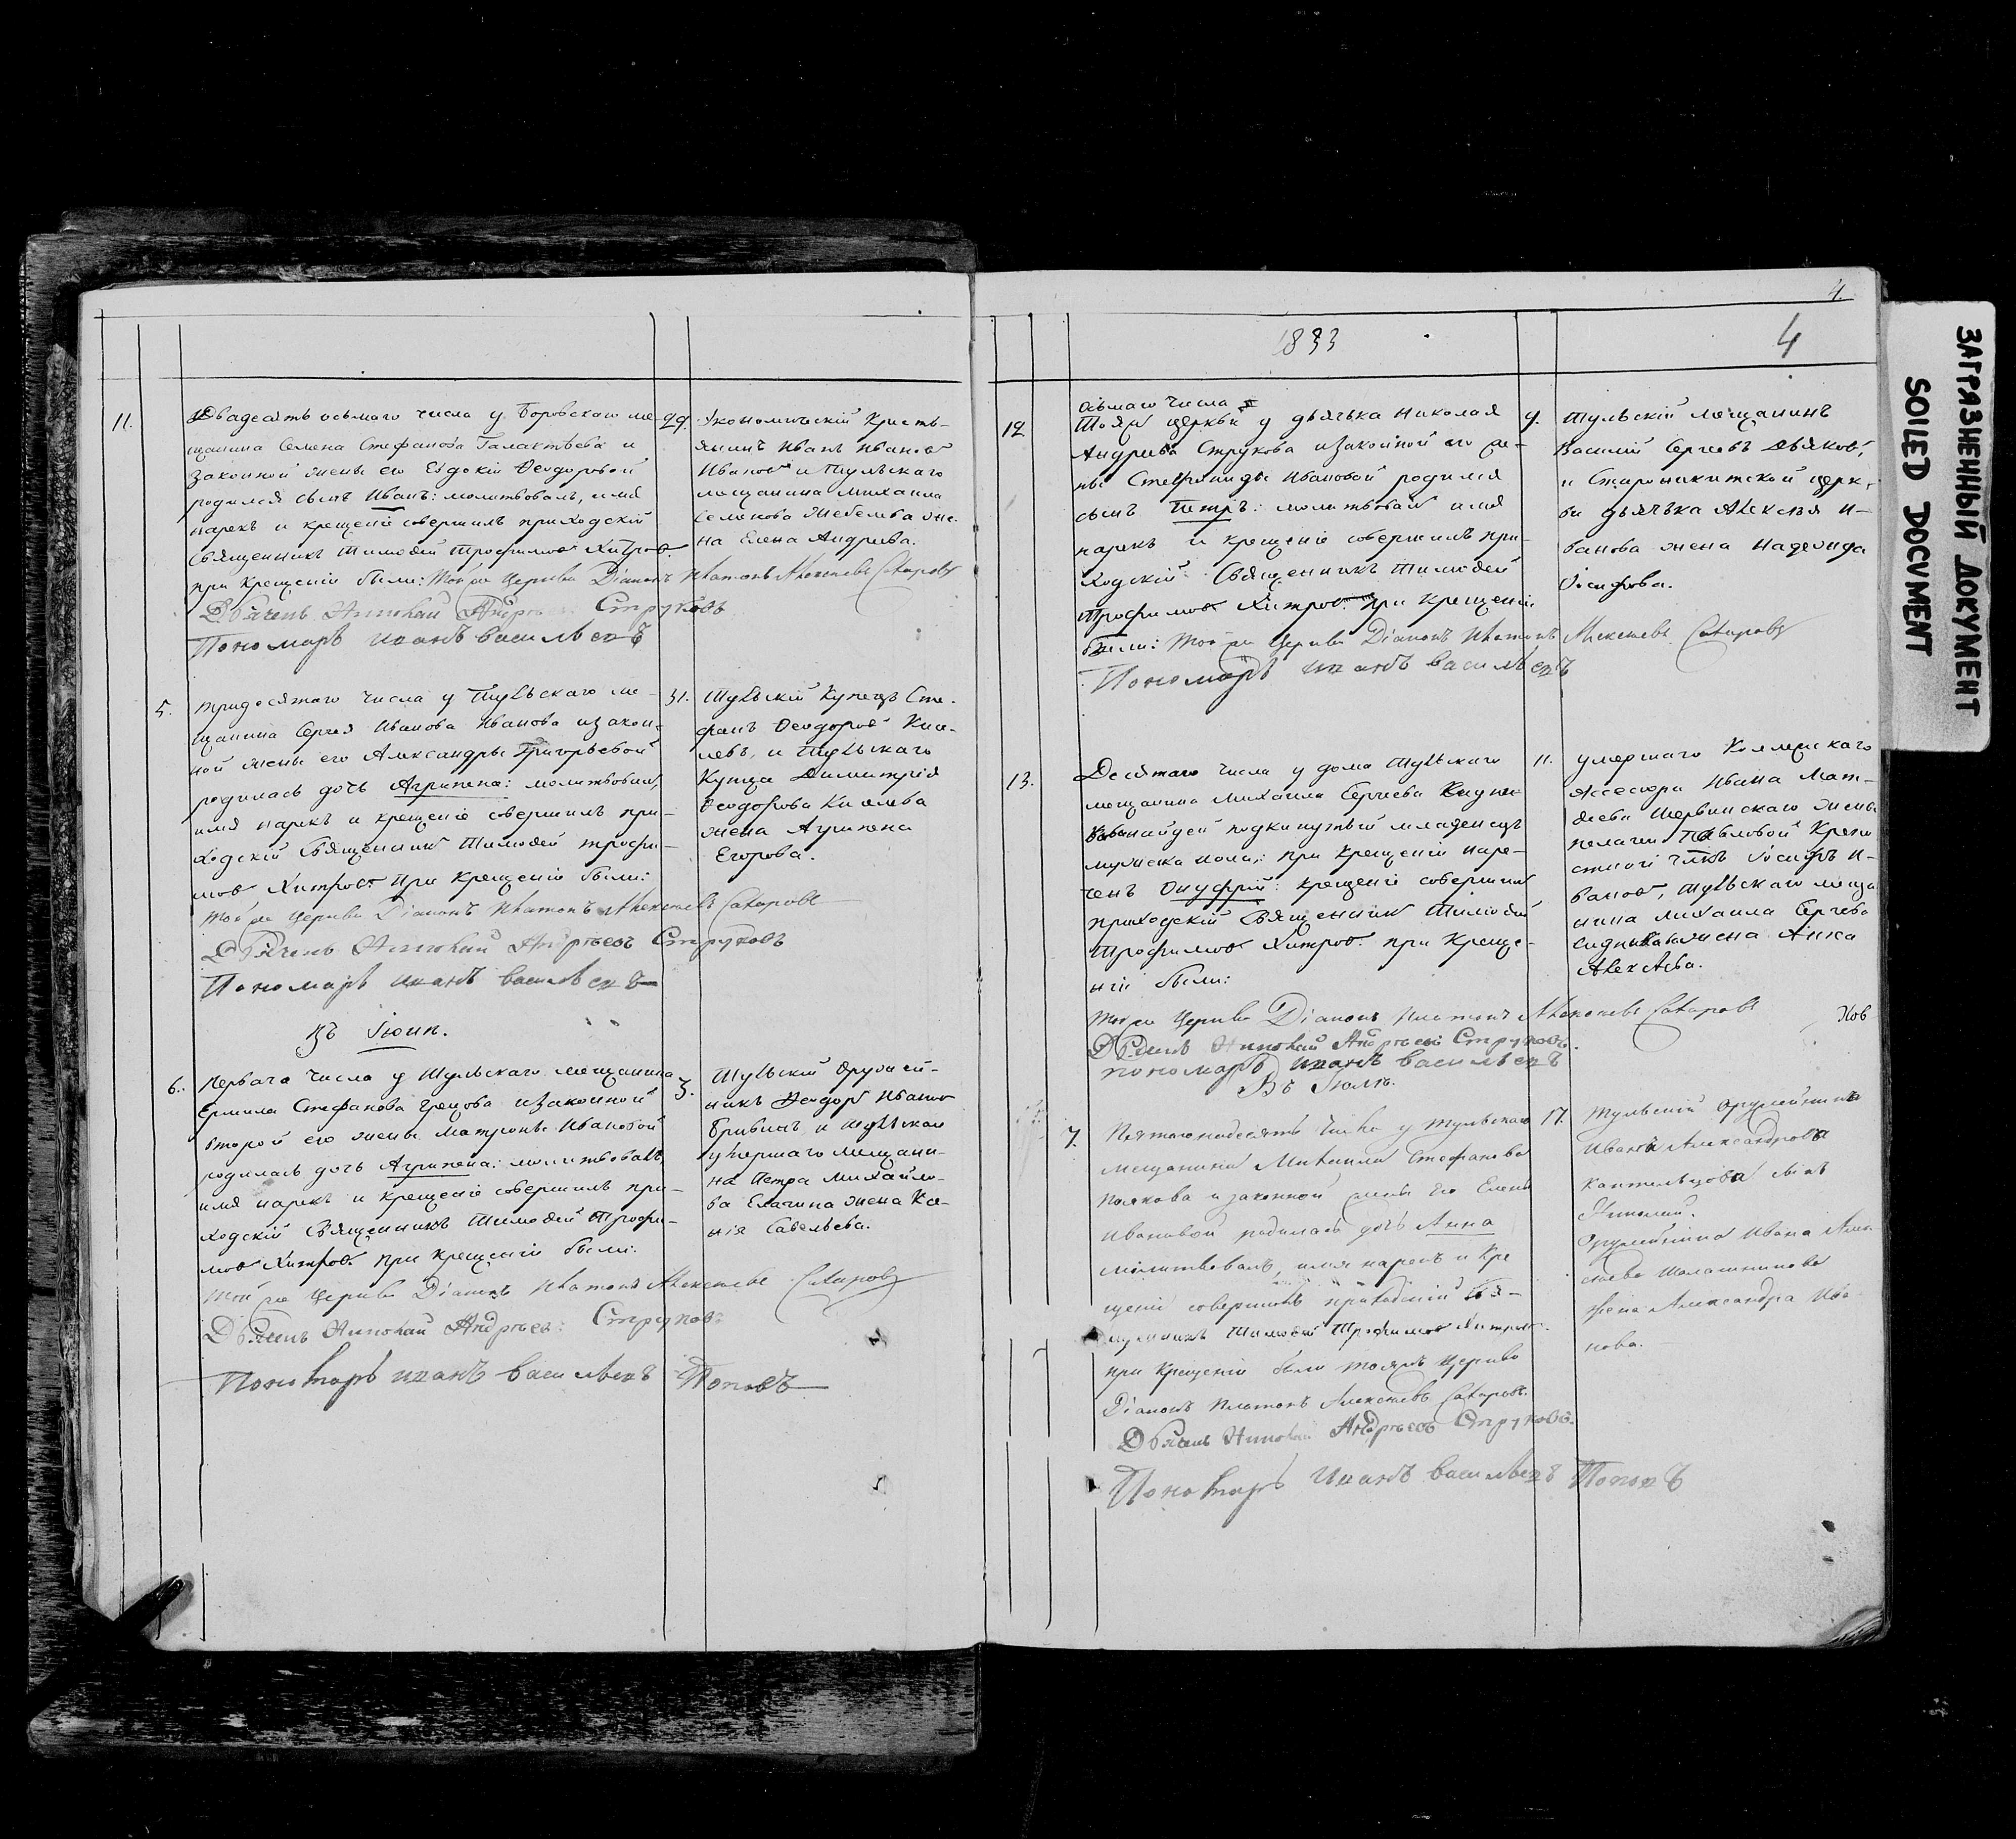 4.
1833
4
ЗАГРЯЗНЕННЫЙ ДОКУМЕНТ
SOILED DOCUMENT
11.
Двадесять осьмаго числа у Боровскаго ме-
щанина Семена Стефанова Галактьева и
законной жены его Евдокіи Ѳеодоровой
родился сынъ Иванъ: молитвовалъ, имя
нарекъ и крещеніе совершилъ приходскій
Священникъ Тимоѳей Трофимовъ Хитровъ.
при крещеніи были: Тойже Церкви Діаконъ Платонъ Алексеевъ Сахаровъ
Дьячекъ Николай Андреевъ Струковъ
Пономарь Иванъ Васильевъ
29.
Экономическій Кресть-
янинъ Иванъ Ивановъ
Ивановъ и Тульскаго
мещанина Михаила
Семенова жена
Елена Андреева.
5.
Тридесятаго числа у Тульскаго ме-
щанина Сергея Иванова Иванова и закон-
ной жены его Александры Григорьевой
родилась дочь Агрипена: молитвовалъ,
имя нарекъ и крещеніе совершилъ при-
ходскій Священникъ Тимоѳей Трофи-
мовъ Хитровъ при крещеніи были:
Тойже Церкви Діаконъ Платонъ Алексеевъ Сахаровъ
Дьячекъ Николай Андреевъ Струковъ
Пономарь Иванъ Васильевъ
31.
Тульскій Купецъ Сте-
фанъ Ѳеодоровъ Кисе-
левъ, и Тульскаго
Купца Димитрія
Ѳеодорова Киселева
жена Агрипена
Егорова.
Въ Іюнѣ.
6.
Перваго числа у Тульскаго мещанина
Ермила Стефанова Грецова и законной
второй его жены Матроны Ивановой
родилась дочь Агрипена: молитвовалъ,
имя нарекъ и крещеніе совершилъ при-
ходскій Священникъ Тимоѳей Трофи-
мовъ Хитровъ при крещеніи были:
Тойже Церкви Діаконъ Платонъ Алексеевъ Сахаровъ
Дьячекъ Николай Андреевъ Струковъ
Пономарь Иванъ Васильевъ Поповъ
3.
Тульскій Оружей-
никъ Ѳеодоръ Ивановъ
и Тульскаго
умершаго мещани-
на Петра Михайло-
ва жена Ксе-
нія Савельева.
12
Осьмаго числа
Тояже церкви у дьячька Николая
Андреева Струкова и законной его же-
ны Стефаниды Ивановой родился
сынъ Петръ: молитвовалъ имя
нарекъ и крещеніе совершилъ при-
ходскій Священникъ Тимоѳей
Трофимовъ Хитровъ при крещеніи
были: Тойже Церкви Діаконъ Платонъ Алексеевъ Сахаровъ
Пономарь Иванъ Васильевъ
9.
Тульскій мещанинъ
Василій Сергеевъ Дьяковъ,
и Староникитской церк-
ви дьячька Алексея И-
ванова жена Надежда
Осифова.
13.
Десятаго числа у дома Тульскаго
мещанина Михаила Сергеева
найденъ подкинутый младенецъ
мужеска пола: при крещеніи наре-
ченъ Онуфрій: крещеніе совершилъ
приходскій Священникъ Тимоѳей
Трофимовъ Хитровъ при креще-
ніи были:
Тойже Церкви Діаконъ Платонъ Алексеевъ Сахаровъ
Дьячекъ Николай Андреевъ Струковъ.
Пономарь Иванъ Васильевъ
11.
умершаго Коллежскаго
Ассесора Ивана Мат-
веева жены
Пелагеи Павловой Крепо
стной члкъ Іосифъ И-
вановъ, Тульскаго меща
нина Михаила Сергеева
жена Анна
Алексеева.
Нов
Въ Іюлѣ.
7.
Пятагонадесять числа у Тульскаго
мещанина Михаила Стефанова
Полякова и законной жены его Елены
Ивановой родилась дочь Анна
молитвовалъ, имя нарекъ и кре
щеніе совершилъ приходскій Свя-
щенникъ Тимоѳей Трофимовъ Хитровъ.
при крещеніи были тояже Церкви
Діаконъ Платонъ Алексеевъ Сахаровъ.
Дьячекъ Николай Андреевъ Струковъ.
Пономарь Иванъ Васильевъ Поповъ
17.
Тульскій оружейника
Ивана Александрова
сынъ
Николай.
Оружейника Ивана Алек
сеева
жена Александра Ива
нова.